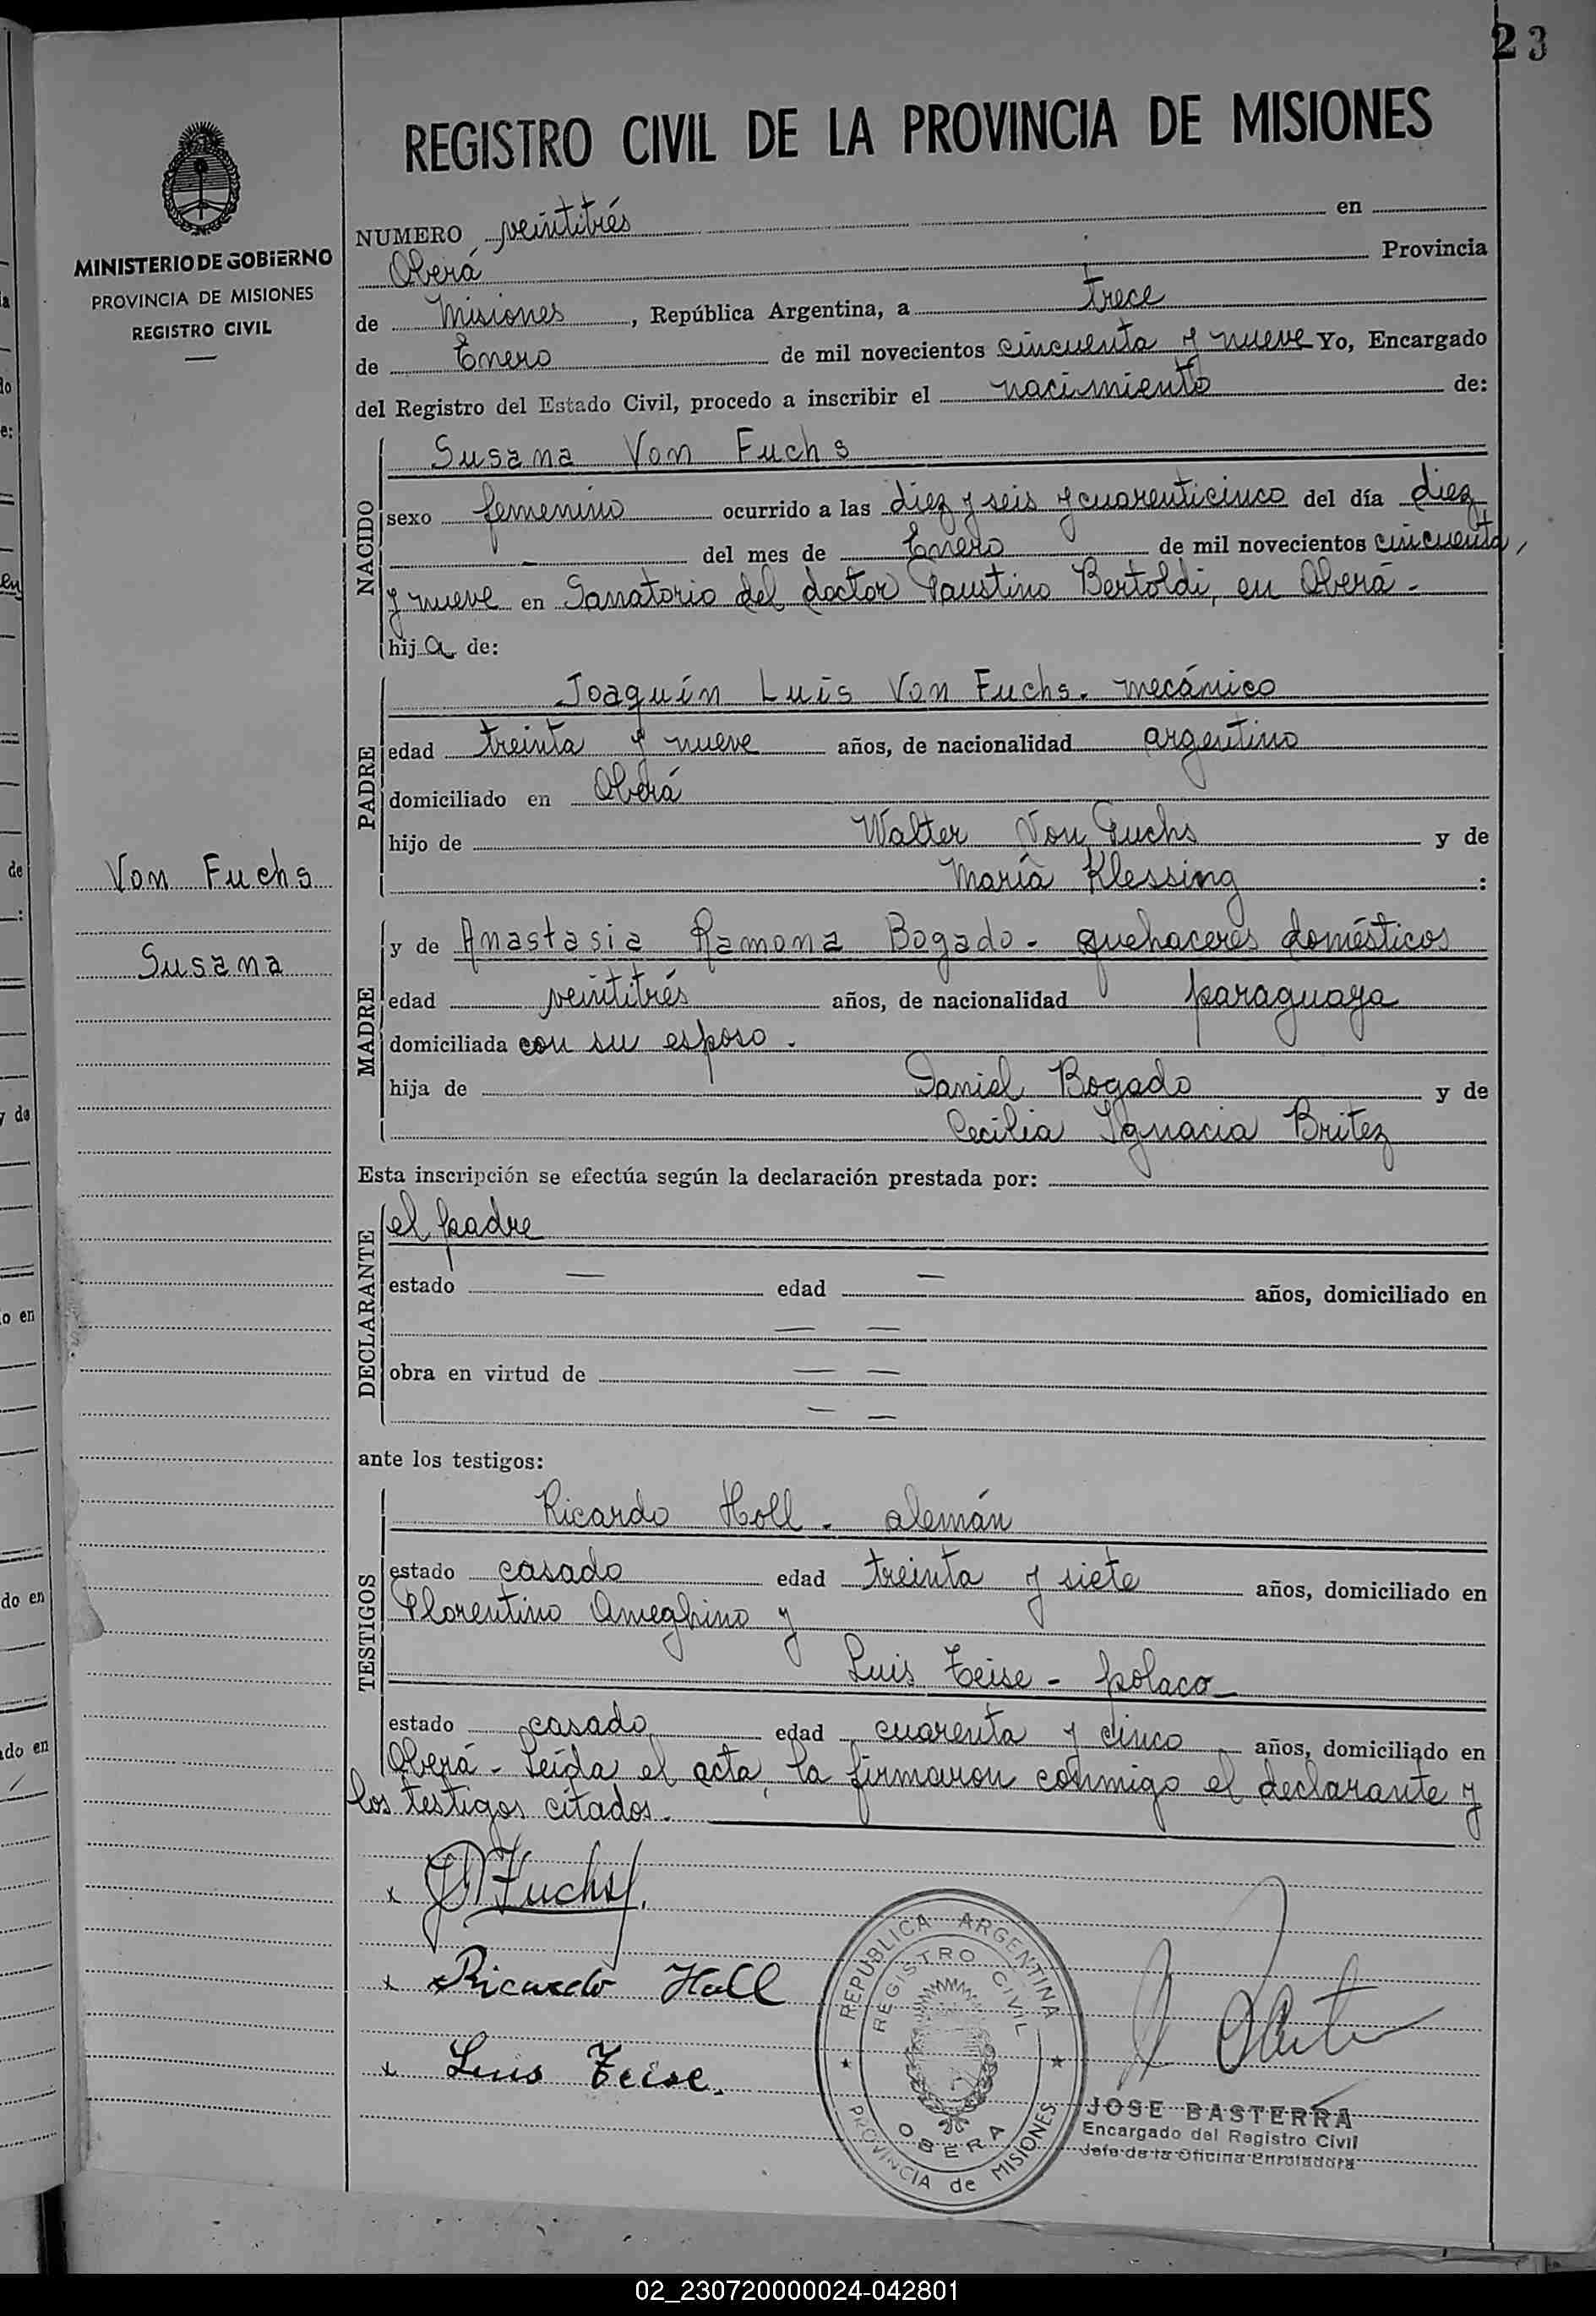 23
REGISTRO CIVIL DE LA PROVINCIA DE MISIONES
MINISTERIO DE GOBIERNO
PROVINCIA DE MISIONES
REGISTRO CIVIL
NUMERO veintitrés en
Oberá Provincia
de Misiones, República Argentina, a trece
de Enero de mil novecientos cincuenta y nueve Yo, Encargado
del Registro del Estado Civil, procedo a inscribir el nacimiento de:
NACIDO
Susana Von Fuchs
sexo femenino ocurrido a las diez y seis y cuarenticinco del día diez
- del mes de Enero de mil novecientos cincuenta
y nueve en Sanatorio del doctor Faustino Bertoldi, en Oberá -
hija de:
PADRE
Joaquín Luis Von Fuchs. mecánico
edad treinta y nueve años, de nacionalidad argentino
domiciliado en Oberá
hijo de Walter Von Fuchs y de
María Klessing :
Von Fuchs
Susana
MADRE
y de Anastasia Ramona Bogado - quehaceres domésticos
edad veintitrés años, de nacionalidad paraguaya
domiciliada con su esposo.
hija de Daniel Bogado y de
Cecilia Ignacia Britez
Esta inscripción se efectúa según la declaración prestada por:
DECLARANTE
el padre
estado — edad — años, domiciliado en
— —
obra en virtud de — —
— —
ante los testigos:
TESTIGOS
Ricardo Holl - alemán
estado casado edad treinta y siete años, domiciliado en
Florentino Ameghino y
Luis Zeise - polaco -
estado casado edad cuarenta y cinco años, domiciliado en
Oberá - Leída el acta, la firmaron conmigo el declarante y
los testigos citados.
x Fuchs
x Ricardo Holl
x Luis Zeise.
REPUBLICA ARGENTINA
REGISTRO CIVIL
OBERA
PROVINCIA de MISIONES
JOSE BASTERRA
Encargado del Registro Civil
Jefe de la Oficina Enroladora
02_230720000024-042801